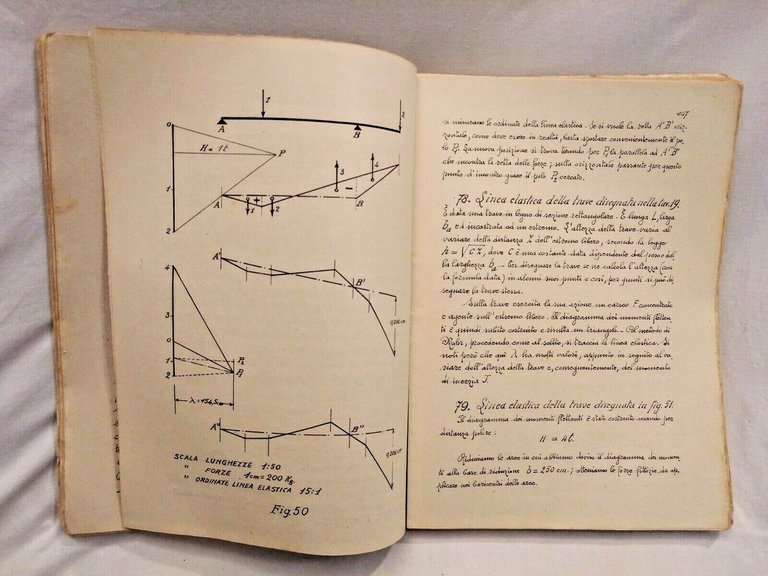 1
2
A
B
0
H = 1t
P
1
2
3
4
+
−
A'
1
2
B
A'
B'
4
3
0
1
2
P₂
P₁
λ = 156,5m
A"
B"
SCALA LUNGHEZZE 1:50
" FORZE 1cm = 200 Kg.
" ORDINATE LINEA ELASTICA 15:1
Fig. 50
107
si misurano le ordinate della linea elastica. Se si vuole la retta A'B' oriz-
zontale, come deve essere in realtà, basta spostare convenientemente il po-
lo P₁. La nuova posizione si trova tirando per P₁ la parallela ad A'B'
che incontra la retta delle forze; sulla orizzontale passante per questo
punto d'incontro giace il polo P₂ cercato.
78. Linea elastica della trave disegnata nella tav. 19.
È data una trave in legno di sezione rettangolare. È lunga L, larga
b ed è incastrata ad un estremo. L'altezza della trave varia al
variare della distanza Z dell'estremo libero, secondo la legge
h = √CZ, dove C è una costante data dipendente dal peso e dal-
la larghezza b. Per disegnare la trave se ne calcola l'altezza (con
la formula data) in alcuni suoi punti e così, per punti si può di-
segnare la trave stessa.
Sulla trave esercita la sua azione un carico F concentrato
e agente sull'estremo libero. Il diagramma dei momenti fletten-
ti è quindi subito costruito e risulta un triangolo. Col metodo di
Mohr, procedendo come al solito, si traccia la linea elastica. Si
noti però che qui λ ha molti valori, appunto in seguito al va-
riare dell'altezza della trave e, conseguentemente, del momento
di inerzia J.
79. Linea elastica della trave disegnata in fig. 51.
Il diagramma dei momenti flettenti è stato costruito usando per
distanza polare:
H = 4t.
Riduciamo le aree in cui abbiamo diviso il diagramma dei momen-
ti alla base di riduzione b = 250 cm.; otteniamo le forze fittizie da ap-
plicare nei baricentri delle aree.